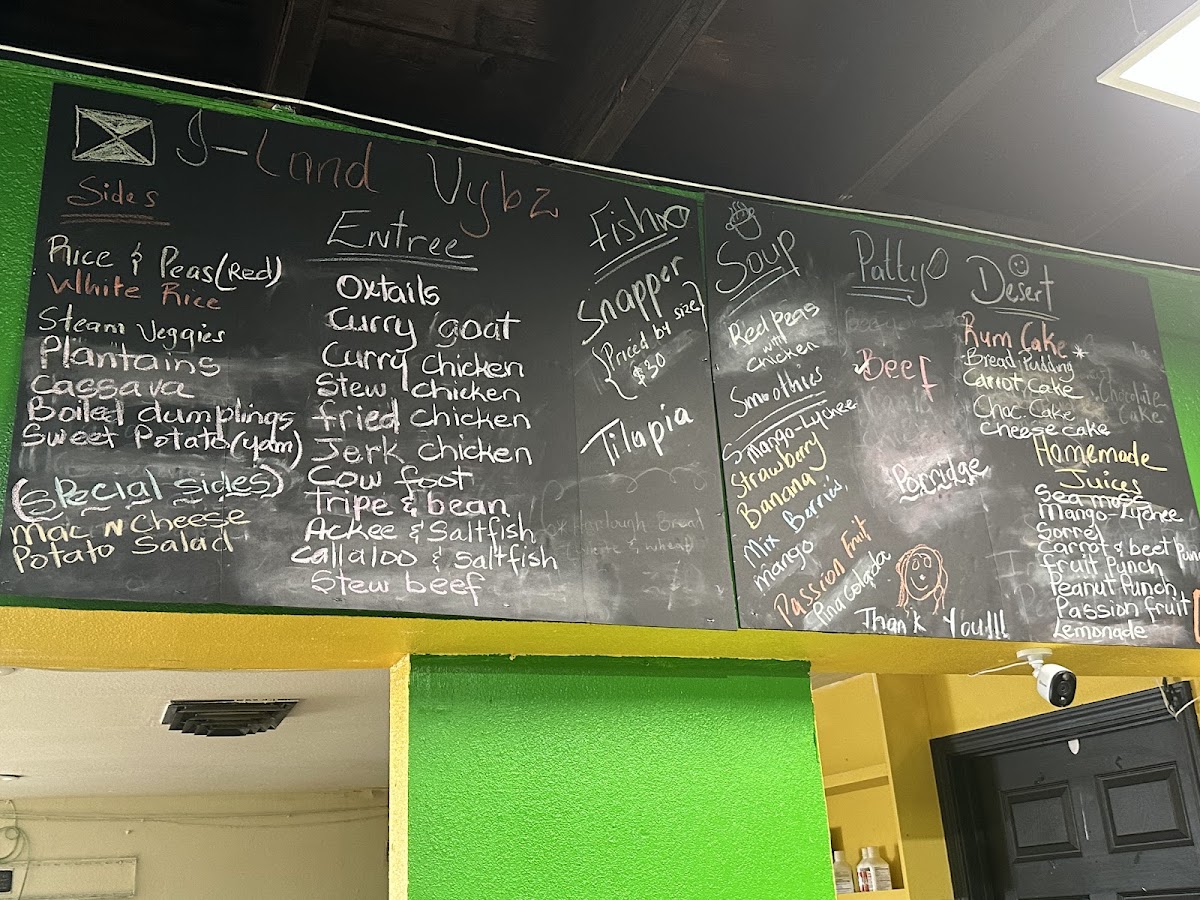 I-Land Vybz
Sides
Rice & Peas (Red)
White Rice
Steam Veggies
Plantains
Cassava
Boiled dumplings
Sweet Potato (yam)
(Special sides)
Mac N Cheese
Potato Salad
Entree
Oxtails
Curry goat
Curry Chicken
Stew Chicken
fried chicken
Jerk chicken
Cow foot
Tripe & bean
Ackee & Saltfish
Callaloo & Saltfish
Stew beef
Fish
Snapper
{Priced by size}
$30
Tilapia
Soup
Red Peas
with
Chicken
Smoothies
Mango-Lychee
Strawberry
Banana
Mix Berries
Mango
Passion Fruit
Pina Colada
Patty
Beef
Porridge
Thank You!!!
Desert
Rum Cake *
Bread Pudding
Carrot Cake
Choc Cake
Cheese cake
Chocolate
Cake
Homemade
Juices
Sea moss
Mango-Lychee
Sorrel
Carrot & beet
fruit Punch
Peanut Punch
Passion fruit
Lemonade